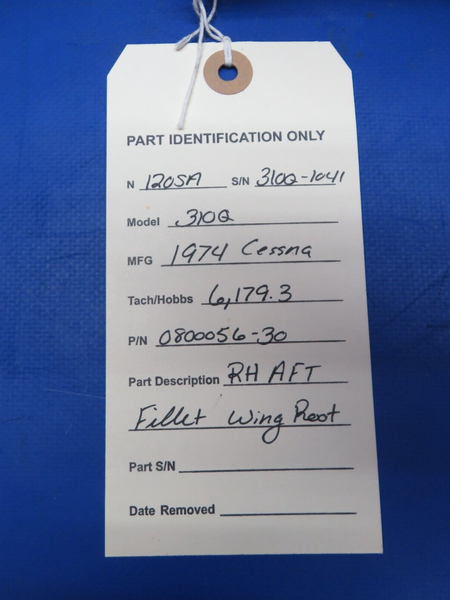 PART IDENTIFICATION ONLY
N 120SA S/N 310Q-1041
Model 310Q
MFG 1974 Cessna
Tach/Hobbs 6,179.3
P/N 0800056-30
Part Description RH AFT
Fillet Wing Root
Part S/N
Date Removed